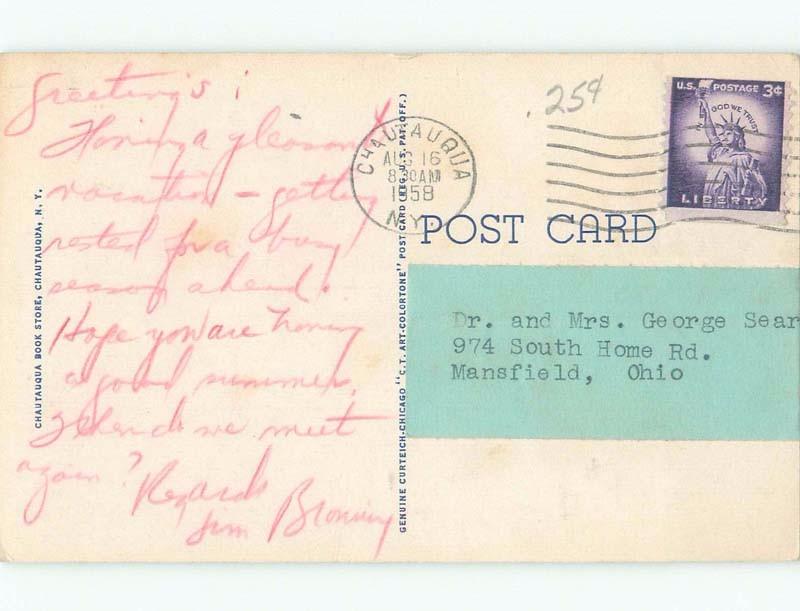 Greeting's !
Having a pleasant
vacation - getting
rested for a busy
season ahead.
Hope you are having
a good summer.
When do we meet
again?
Regards
Jim
CHAUTAUQUA BOOK STORE, CHAUTAUQUA, N. Y.
GENUINE CURTEICH-CHICAGO "C.T. ART-COLORTONE" POST CARD (REG. U.S. PAT. OFF.)
CHAUTAUQUA
AUG 16
8 30 AM
1958
N.Y.
25¢
U.S. POSTAGE 3¢
IN GOD WE TRUST
LIBERTY
POST CARD
Dr. and Mrs. George Sear
974 South Home Rd.
Mansfield, Ohio